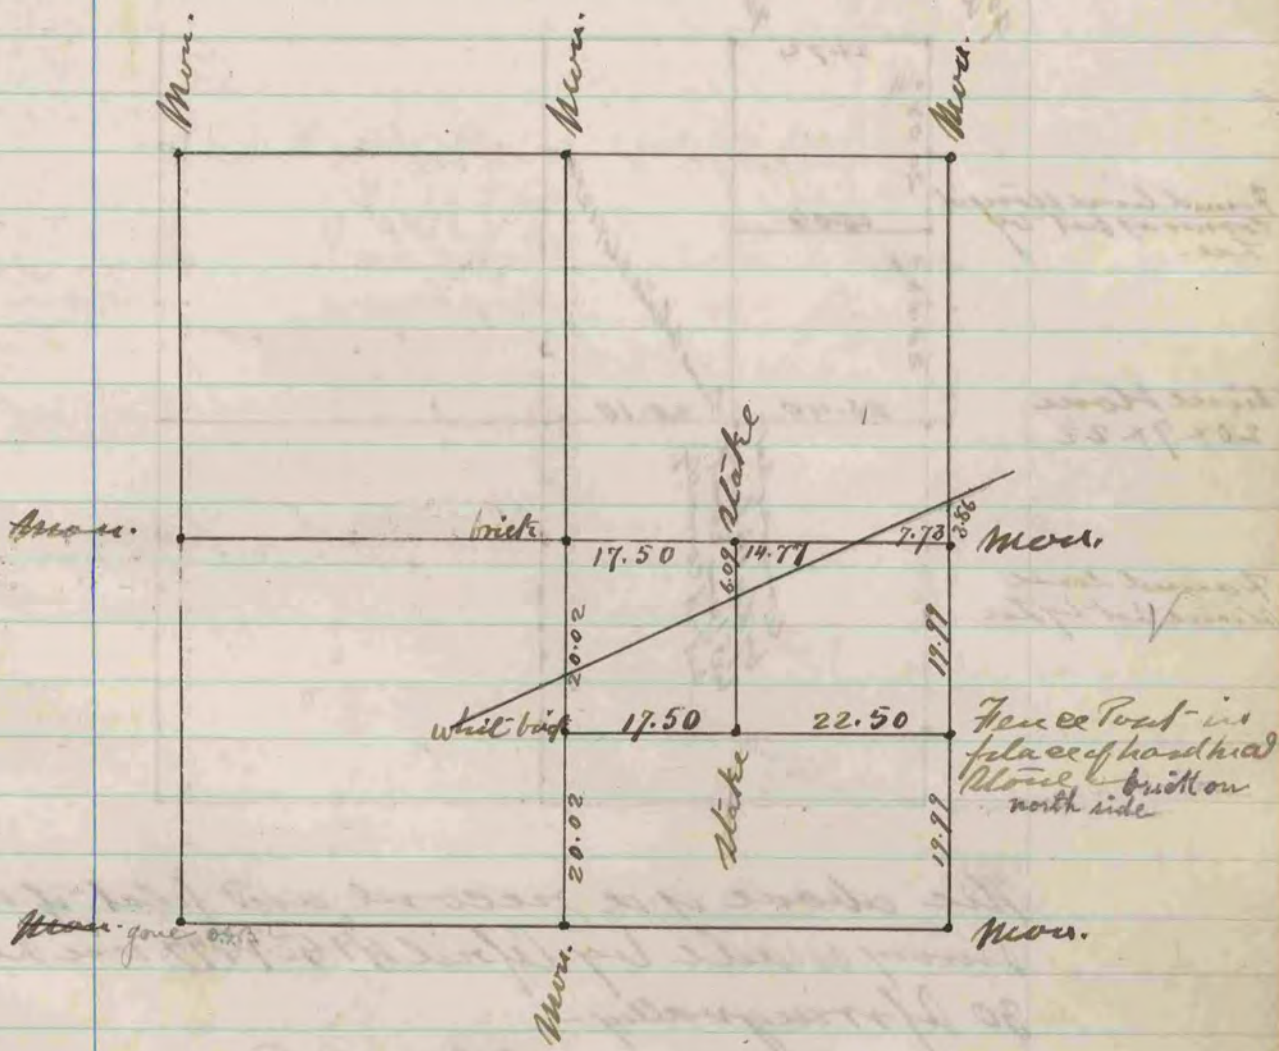 Mon.
Mon.
Mon.
Stake
Mon.
brick
17.50
6.09
14.77
7.73
3.86
Mon.
20.02
19.99
whit brick
17.50
22.50
Fence Post in
place of hard head
Stone brick on
north side
Stake
20.02
19.99
Mon. gone
Mon.
Mon.